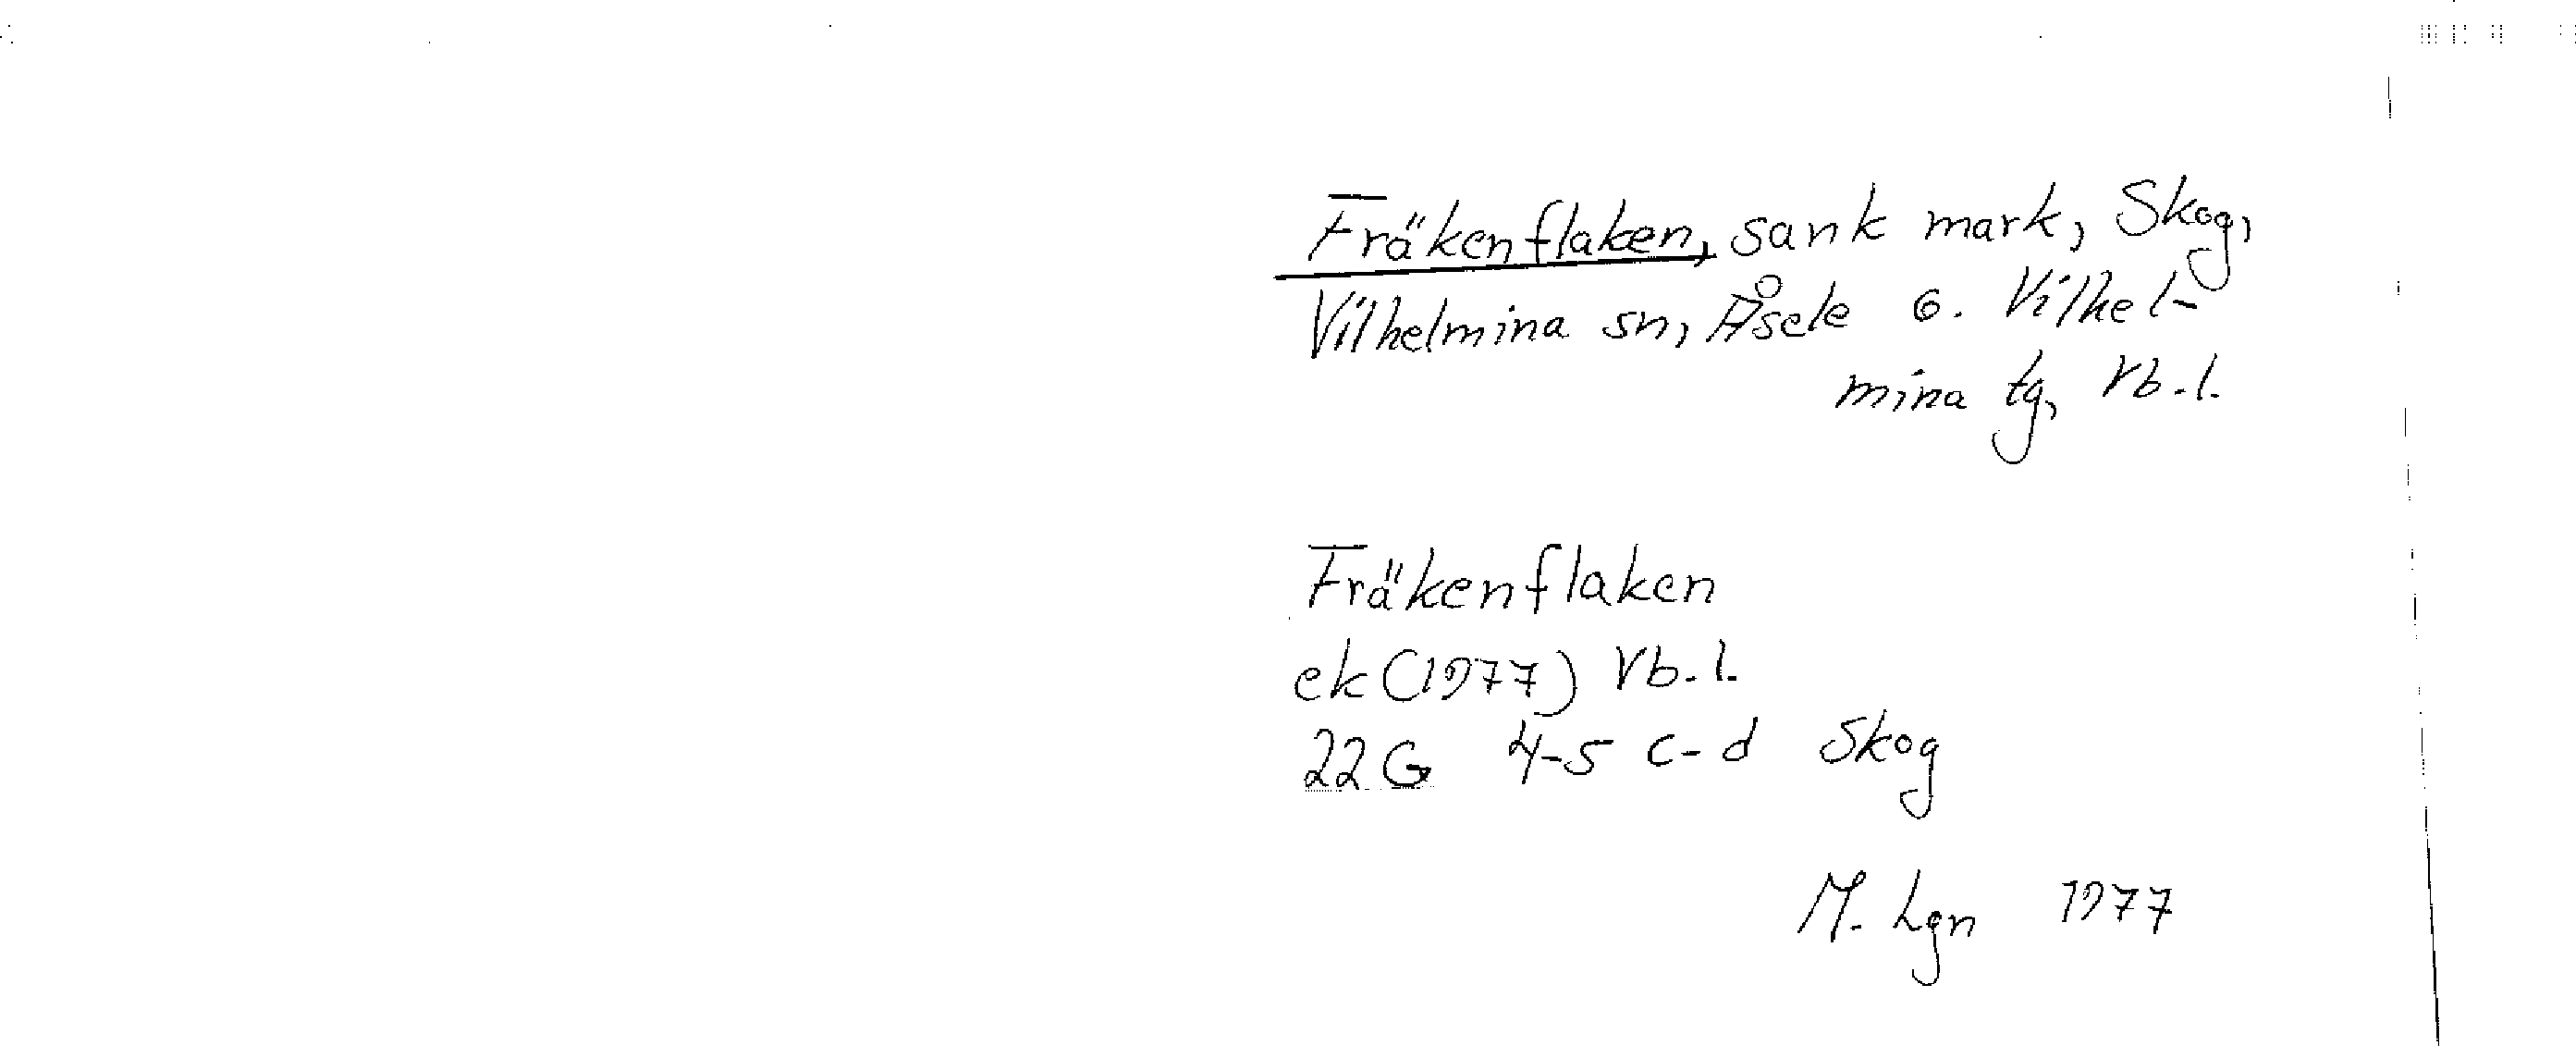 Fräkenflaken, sank mark, Skog,
Vilhelmina sn, Åsele o. Vilhel-
mina tg, Vb.l.
Fräkenflaken
ek (1977) Vb.l.
22 G 4-5 c-d Skog
M. Lgn 1977